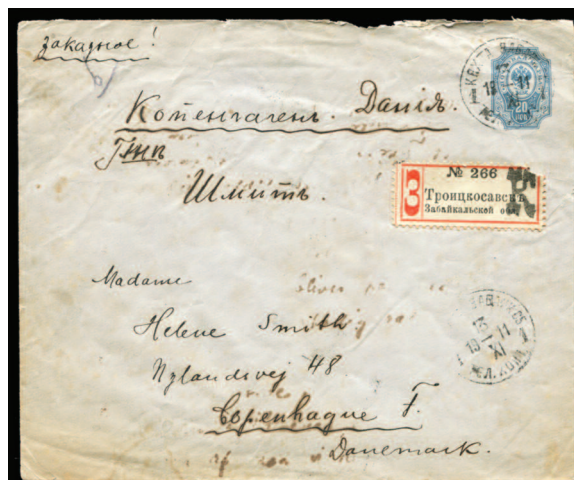 Заказное!
Копенгагенъ. Данія.
Гжѣ
Шмитъ.
20
№ 266
З
Троицкосавскъ
Забайкальской обл.
Madame
Helene Smith
Nylandsvej 48
Copenhague F.
Danemark.
13
19 11
XI